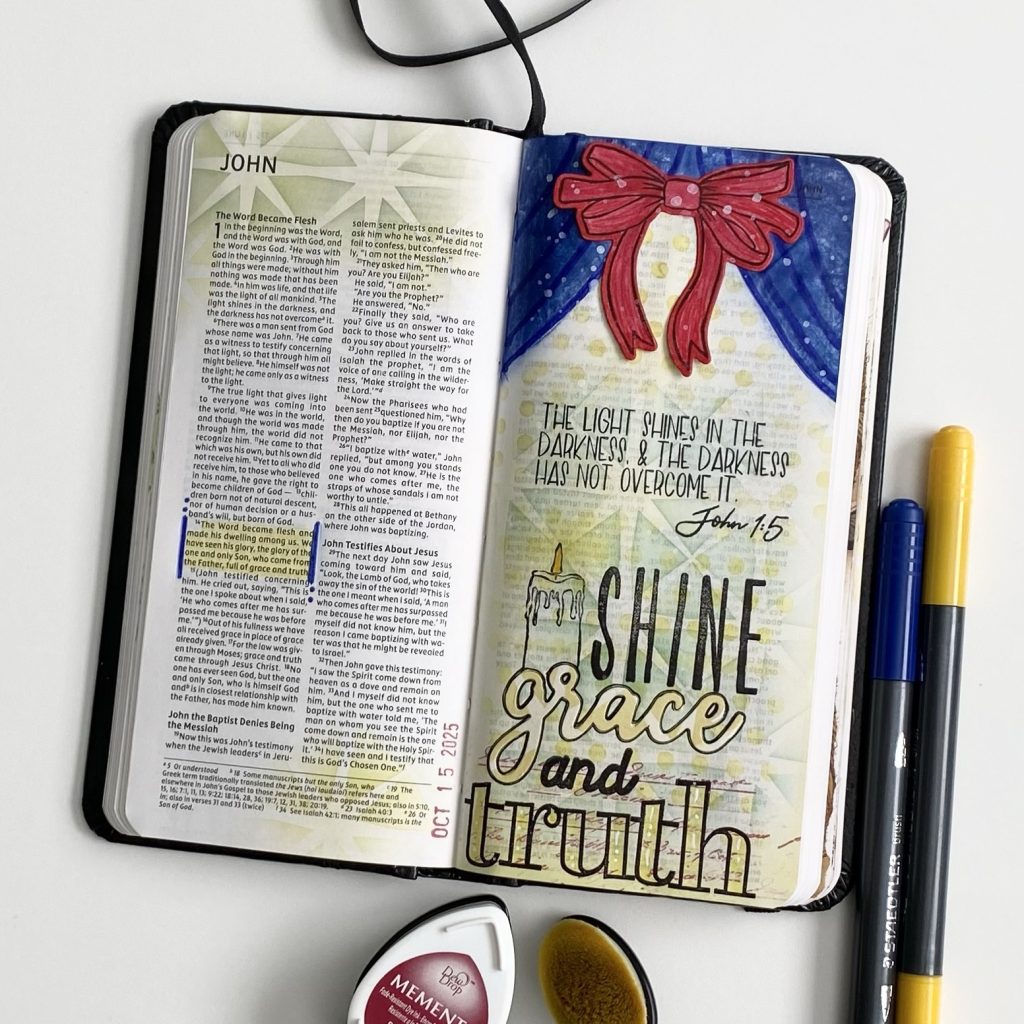 JOHN
The Word Became Flesh
1 In the beginning was the Word,
and the Word was with God, and
the Word was God. 2He was with
God in the beginning. 3Through him
all things were made; without him
nothing was made that has been
made. 4In him was life, and that life
was the light of all mankind. 5The
light shines in the darkness, and
the darkness has not overcomeᵃ it.
6There was a man sent from God
whose name was John. 7He came
as a witness to testify concerning
that light, so that through him all
might believe. 8He himself was not
the light; he came only as a witness
to the light.
9The true light that gives light
to everyone was coming into
the world. 10He was in the world,
and though the world was made
through him, the world did not
recognize him. 11He came to that
which was his own, but his own did
not receive him. 12Yet to all who did
receive him, to those who believed
in his name, he gave the right to
become children of God — 13chil-
dren born not of natural descent,
nor of human decision or a hus-
band's will, but born of God.
14The Word became flesh and
made his dwelling among us. We
have seen his glory, the glory of the
one and only Son, who came from
the Father, full of grace and truth.
15(John testified concerning
him. He cried out, saying, "This is
the one I spoke about when I said,
'He who comes after me has sur-
passed me because he was before
me.'") 16Out of his fullness we have
all received grace in place of grace
already given. 17For the law was giv-
en through Moses; grace and truth
came through Jesus Christ. 18No
one has ever seen God, but the one
and only Son, who is himself God
andᵇ is in closest relationship with
the Father, has made him known.
John the Baptist Denies Being
the Messiah
19Now this was John's testimony
when the Jewish leadersᶜ in Jeru-
salem sent priests and Levites to
ask him who he was. 20He did not
fail to confess, but confessed free-
ly, "I am not the Messiah."
21They asked him, "Then who are
you? Are you Elijah?"
He said, "I am not."
"Are you the Prophet?"
He answered, "No."
22Finally they said, "Who are
you? Give us an answer to take
back to those who sent us. What
do you say about yourself?"
23John replied in the words of
Isaiah the prophet, "I am the
voice of one calling in the wilder-
ness, 'Make straight the way for
the Lord.'"ᵈ
24Now the Pharisees who had
been sent 25questioned him, "Why
then do you baptize if you are not
the Messiah, nor Elijah, nor the
Prophet?"
26"I baptize withᵉ water," John
replied, "but among you stands
one you do not know. 27He is the
one who comes after me, the
straps of whose sandals I am not
worthy to untie."
28This all happened at Bethany
on the other side of the Jordan,
where John was baptizing.
John Testifies About Jesus
29The next day John saw Jesus
coming toward him and said,
"Look, the Lamb of God, who takes
away the sin of the world! 30This is
the one I meant when I said, 'A man
who comes after me has surpassed
me because he was before me.' 31I
myself did not know him, but the
reason I came baptizing with wa-
ter was that he might be revealed
to Israel."
32Then John gave this testimony:
"I saw the Spirit come down from
heaven as a dove and remain on
him. 33And I myself did not know
him, but the one who sent me to
baptize with water told me, 'The
man on whom you see the Spirit
come down and remain is the one
who will baptize with the Holy Spir-
it.' 34I have seen and I testify that
this is God's Chosen One."ᶠ
ᵃ 5 Or understood ᵇ 18 Some manuscripts but the only Son, who ᶜ 19 The
Greek term traditionally translated the Jews (hoi Ioudaioi) refers here and
elsewhere in John's Gospel to those Jewish leaders who opposed Jesus; also in 5:10,
15, 16; 7:1, 11, 13; 9:22; 18:14, 28, 36; 19:7, 12, 31, 38; 20:19. ᵈ 23 Isaiah 40:3 ᵉ 26 Or
in; also in verses 31 and 33 (twice) ᶠ 34 See Isaiah 42:1; many manuscripts is the
Son of God.
OCT 15 2025
THE LIGHT SHINES IN THE
DARKNESS, & THE DARKNESS
HAS NOT OVERCOME IT.
John 1:5
SHINE
grace
and
truth
STAEDTLER brush
Dew Drop
MEMENT